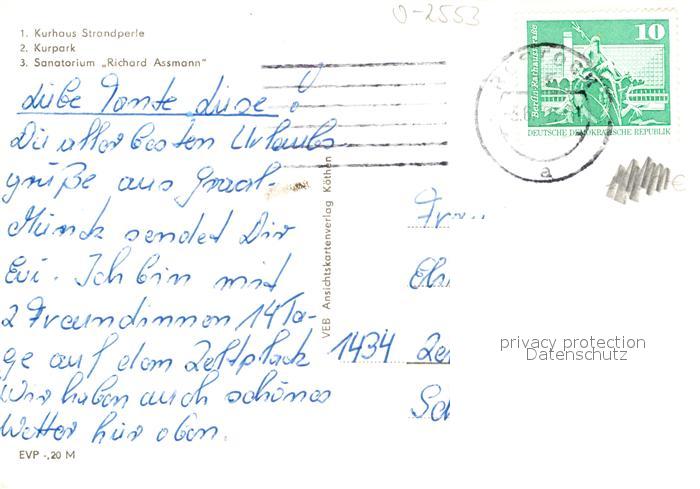 O-2553
1. Kurhaus Strandperle
2. Kurpark
3. Sanatorium „Richard Assmann"
Liebe Tante Liese!
Die allerbesten Urlaubs
grüße aus Graal-
Müritz sendet Dir
Evi. Ich bin mit
2 Freundinnen 14 Ta-
ge auf dem Zeltplatz
Wir haben auch schönes
Wetter hier oben.
EVP -,20 M
VEB Ansichtskartenverlag Köthen
10
Berlin-Rathausstraße
DEUTSCHE DEMOKRATISCHE REPUBLIK
ROSTOCK
a
Fr
1434
privacy protection
Datenschutz
€